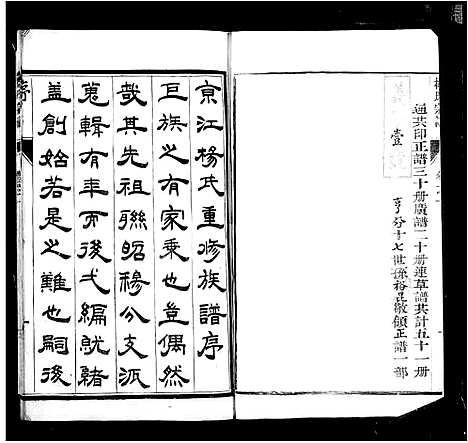 通共印正譜三十册廣譜二十册連草譜共計五十一册
亨分十七世孫裕昆敬領正譜一部
壹
京江楊氏重修族譜序
巨族之有家乗也豈偶然
哉其先祖聯昭穆分支派
蒐輯有年而後弋編就緒
蓋創始若是之難也嗣後